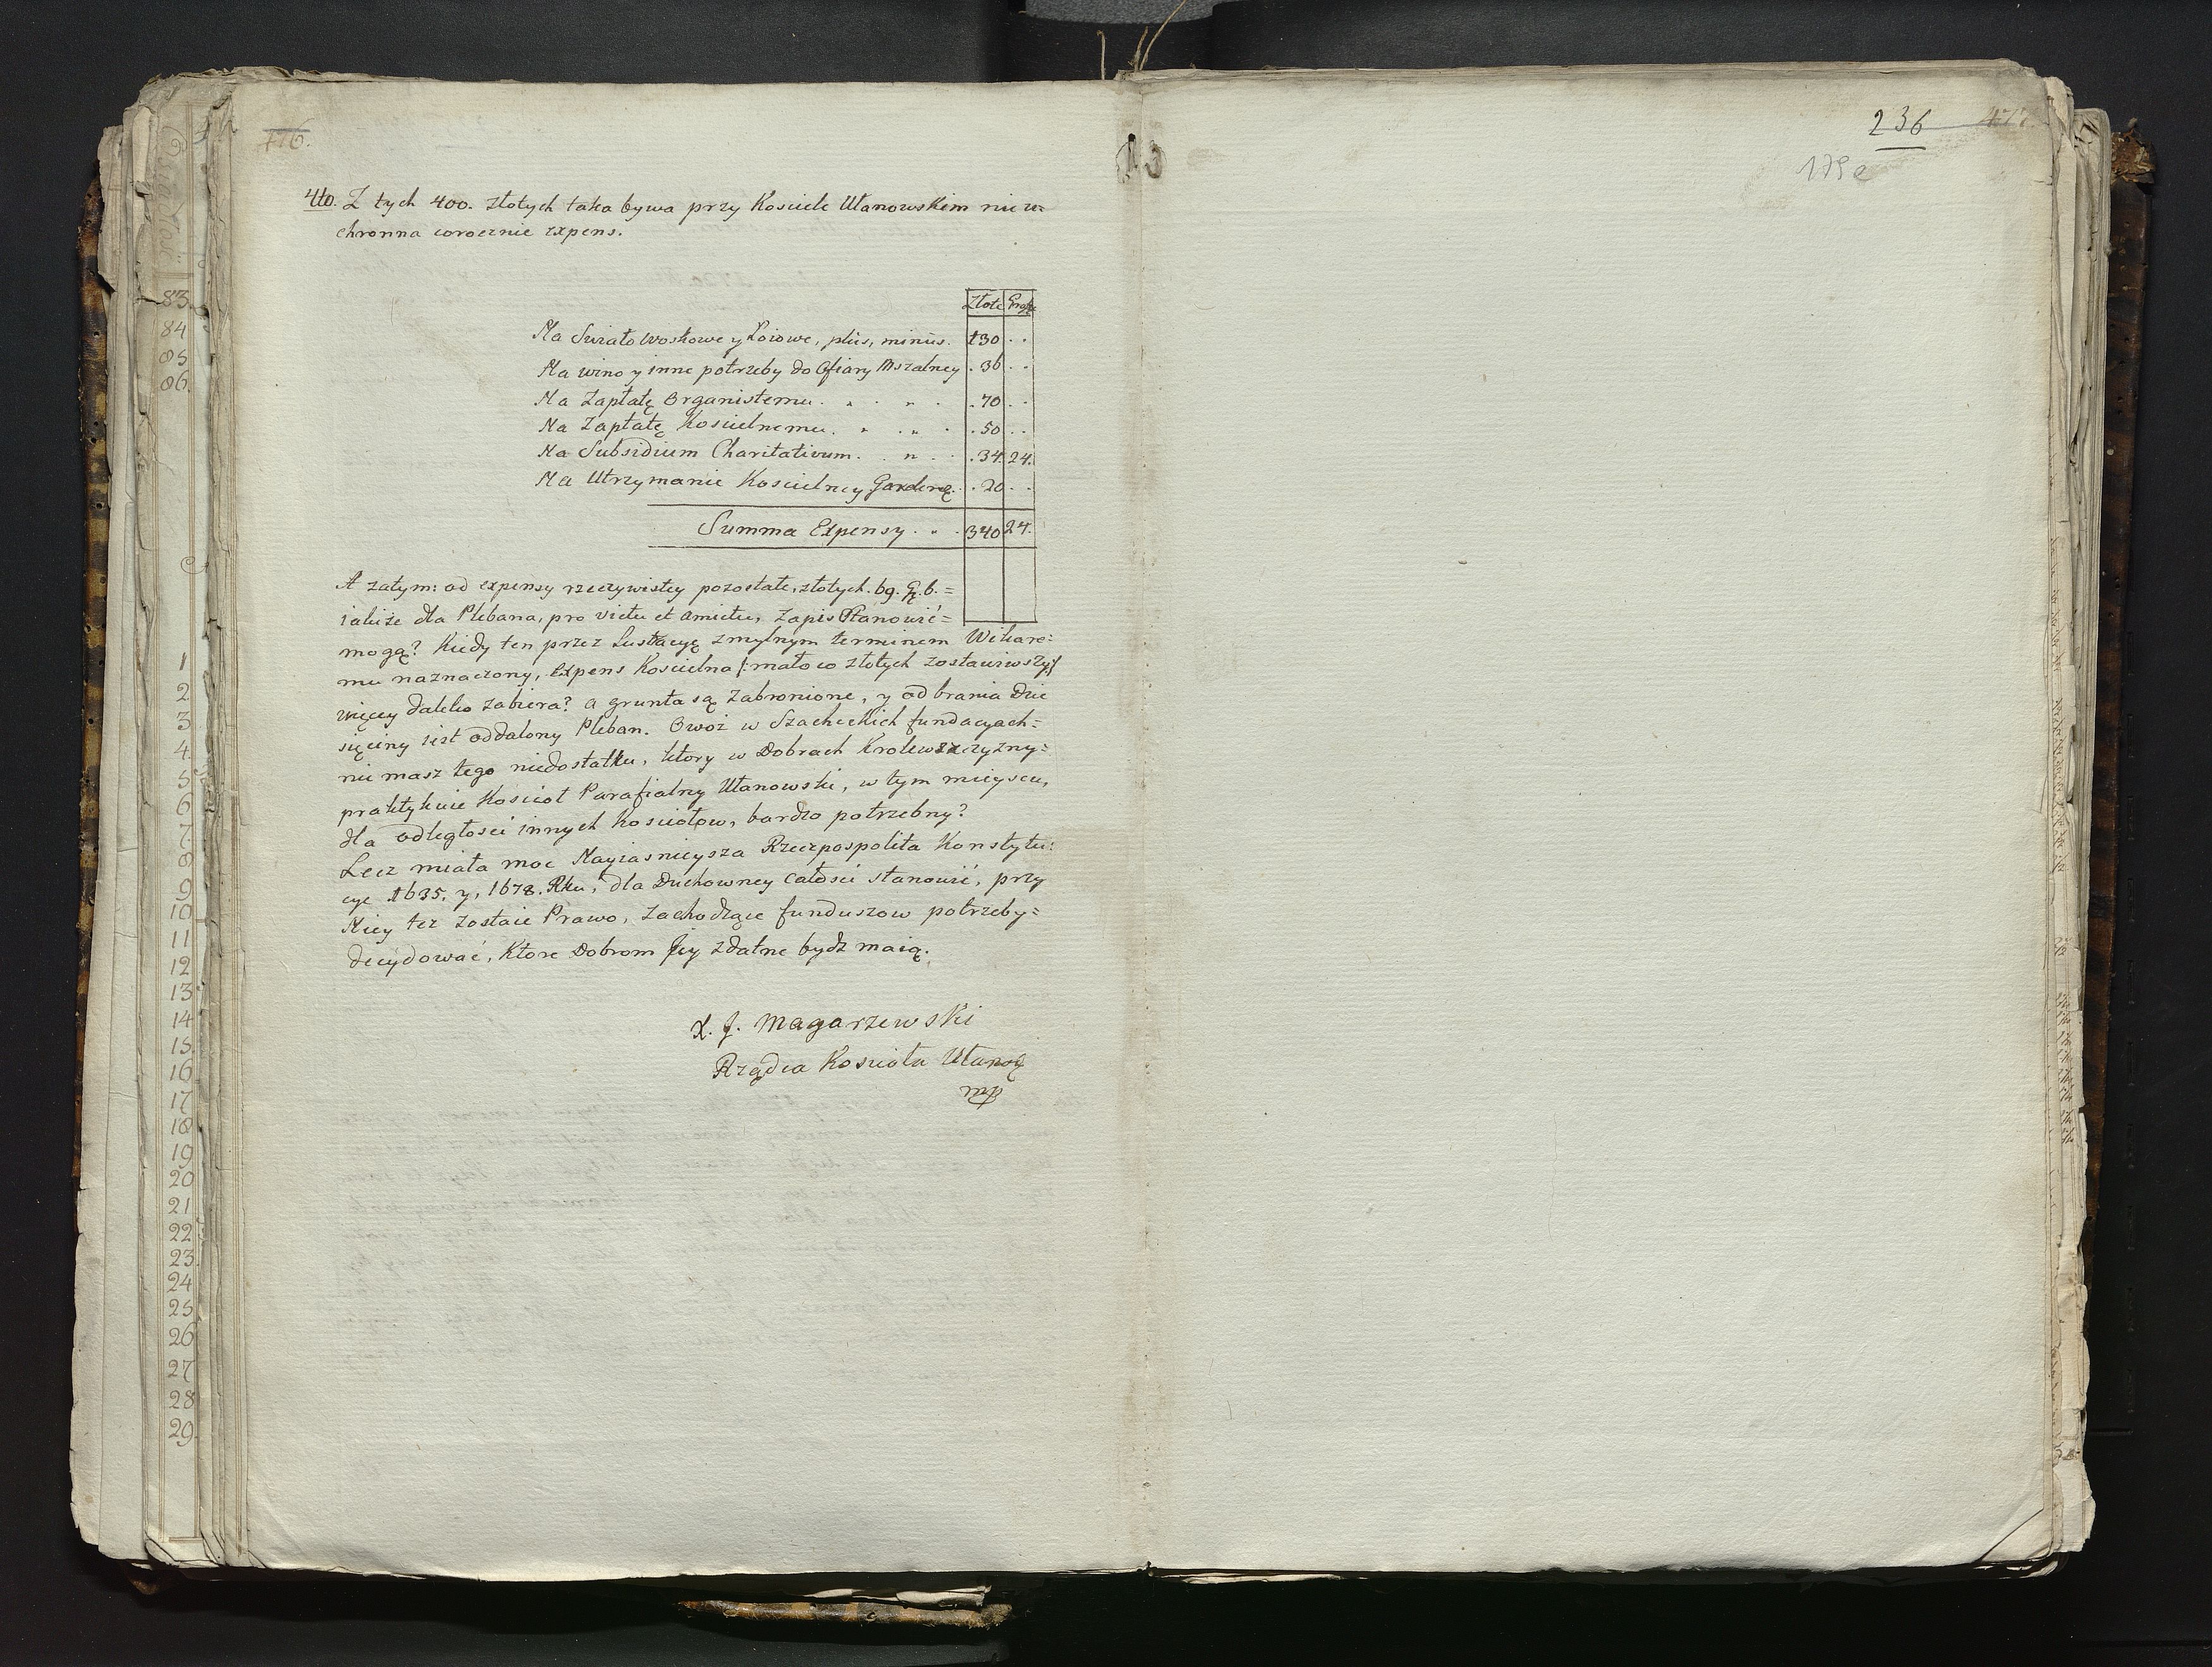 476.
4to. Z tych 400. złotych taka bywa przy Kosciele Ułanowskim nieu=
chronna corocznie expens.
Złote Grosze
Na Swiatło woskowe y Łoiowe, plus, minus. 130 . .
Na wino y inne potrzeby do Ofiary Mszalney . 36 . .
Na Zapłatę Organistemu . 70 . .
Na Zapłatę Koscielnemu . 50 . .
Na Subsidium Charitativum . 34 24.
Na Utrzymanie Koscielney Garderobę . 20 . .
Summa Expensy . . 340 24.
A zatym: od expensy rzeczywistey pozostałe, złotych. 69. G. 6. =
iakieże dla Plebana, pro victu et amictu, zapis stanowić=
mogą? Kiedy ten przez Lustracyę zmylnym terminem Wikare=
mu naznaczony, expens Koscielna /: mało co złotych zostawiwszy :/
więcey daleko zabiera? a grunta są zabronione, y od brania Dzie
sięciny iest oddalony Pleban. Owoż w Szlacheckich fundacyach=
nie masz tego niedostatku, ktory w Dobrach Krolewszczyzny=
praktykuie Kosciół Parafialny Ułanowski, w tym mieyscu,
dla odległosci innych Kosciołow, bardzo potrzebny?
Lecz miała moc Nayiasnieysza Rzeczpospolita Konstytu=
cye 1635. y, 1678. Rku, dla Duchowney całosci stanowić, przy
Niey też zostaie Prawo, zachodzące funduszow potrzeby=
decydować, Ktore Dobrom Jey zdatne bydz maią.
X. J. Magarzewski
Rządca Kosciała Ułanow
mp
236 477.
179e
83.
84
85
86.
1
2
3
4.
5
6
7.
8
9
10
11
12
13
14
15.
16
17
18
19
20
21
22
23
24
25
26
27
28
29.